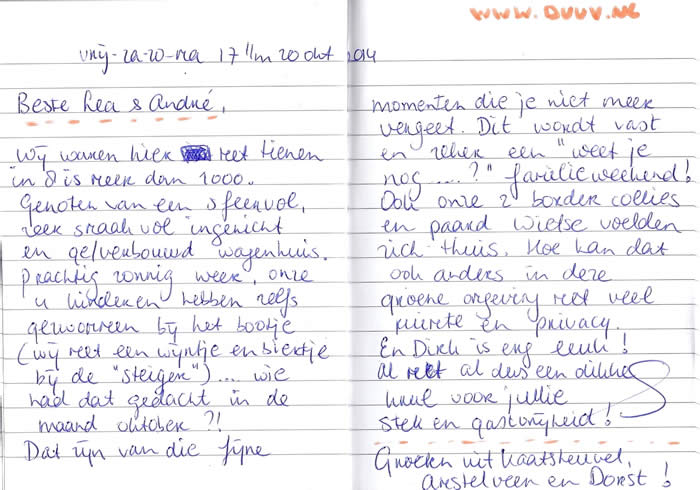 www.ouuv.nl
vrij-za-zo-ma 17 t/m 20 okt 2014
Beste Lea & André,
Wij waren hier met tienen
in 8 is meer dan 1000.
Genoten van een sfeervol,
zeer smaakvol ingericht
en ge/verbouwd wagenhuis.
Prachtig zonnig weer, onze
4 kinderen hebben zelfs
gezwommen bij het bootje
(wij met een wijntje en biertje
bij de "steiger")... wie
had dat gedacht in de
maand oktober ?!
Dat zijn van die fijne
momenten die je niet meer
vergeet. Dit wordt vast
en zeker een "weet je
nog ....?" familieweekend!
Ook onze 2 border collies
en paard Wietse voelden
zich thuis. Hoe kan dat
ook anders in deze
groene omgeving met veel
ruimte en privacy.
En Dirk is erg leuk!
Al met al dus een dikke
knul voor jullie
stek en gastvrijheid!
Groeten uit Kaatsheuvel,
Amstelveen en Dorst!